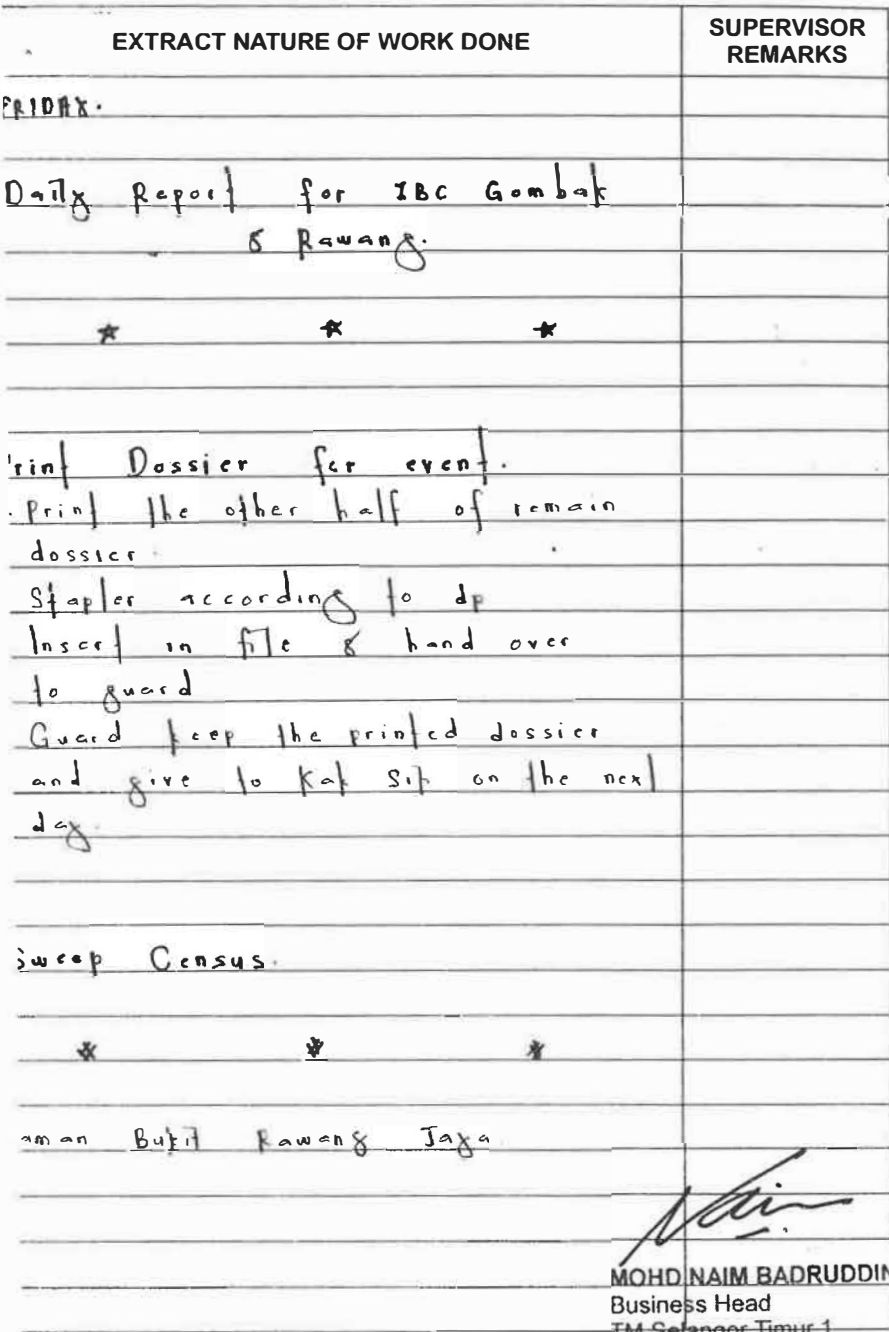 EXTRACT NATURE OF WORK DONE
SUPERVISOR REMARKS
FRIDAY.
Daily Report for IBC Gombak
& Rawang.
rint Dossier for event.
. Print the other half of remain
dossier.
Stapler according to dp
Insert in file & hand over
to guard
Guard keep the printed dossier
and give to Kak Siti on the next
day.
Sweep Census.
aman Bukit Rawang Jaya
MOHD NAIM BADRUDDIN
Business Head
TM Selangor Timur 1